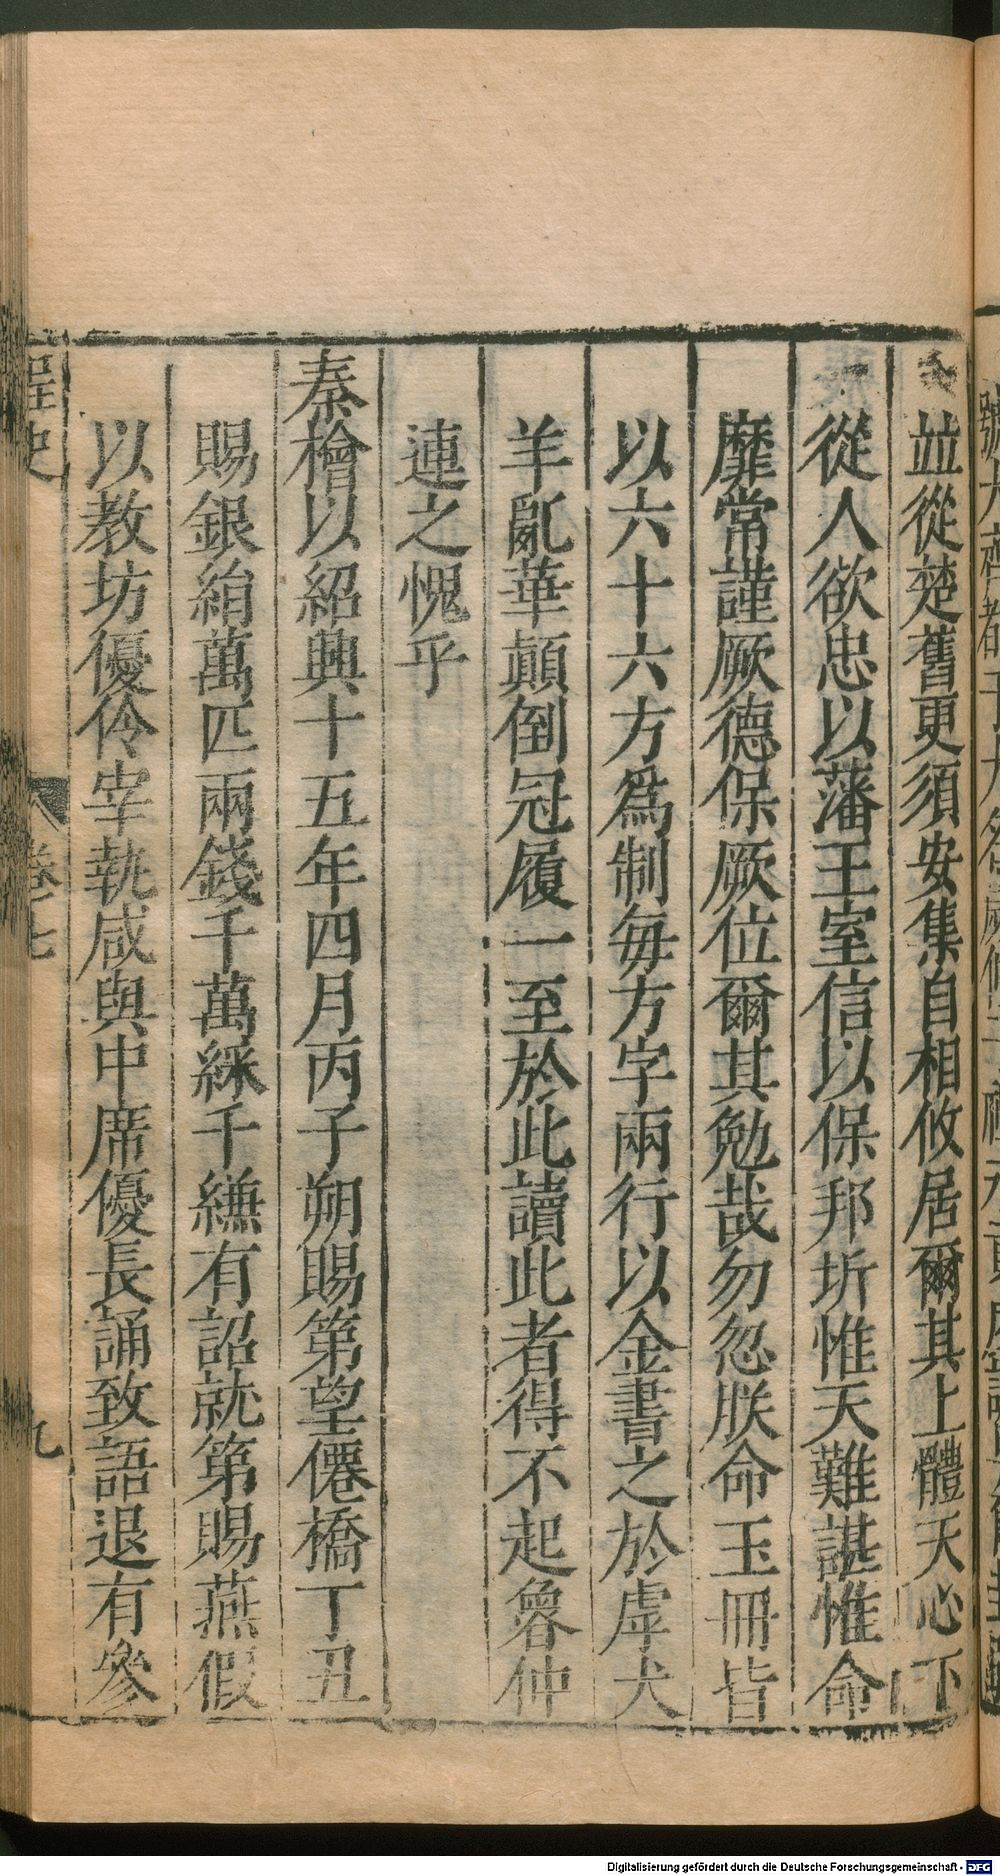 並從楚舊更須安集自相攸居爾其上體天心下
從人欲忠以藩王室信以保邦圻惟天難諶惟命
靡常謹厥德保厥位爾其勉哉勿忽朕命玉冊皆
以六十六方爲制毎方字兩行以金書之於虖犬
羊亂華顛倒冠履一至於此讀此者得不起魯仲
連之愧乎
秦檜以紹興十五年四月丙子朔賜第望僊橋丁丑
賜銀絹萬匹兩錢千萬綵千縑有詔就第賜燕假
以教坊優伶宰執咸與中席優長誦致語退有參
桯史
卷七
九
Digitalisierung gefördert durch die Deutsche Forschungsgemeinschaft - DFG